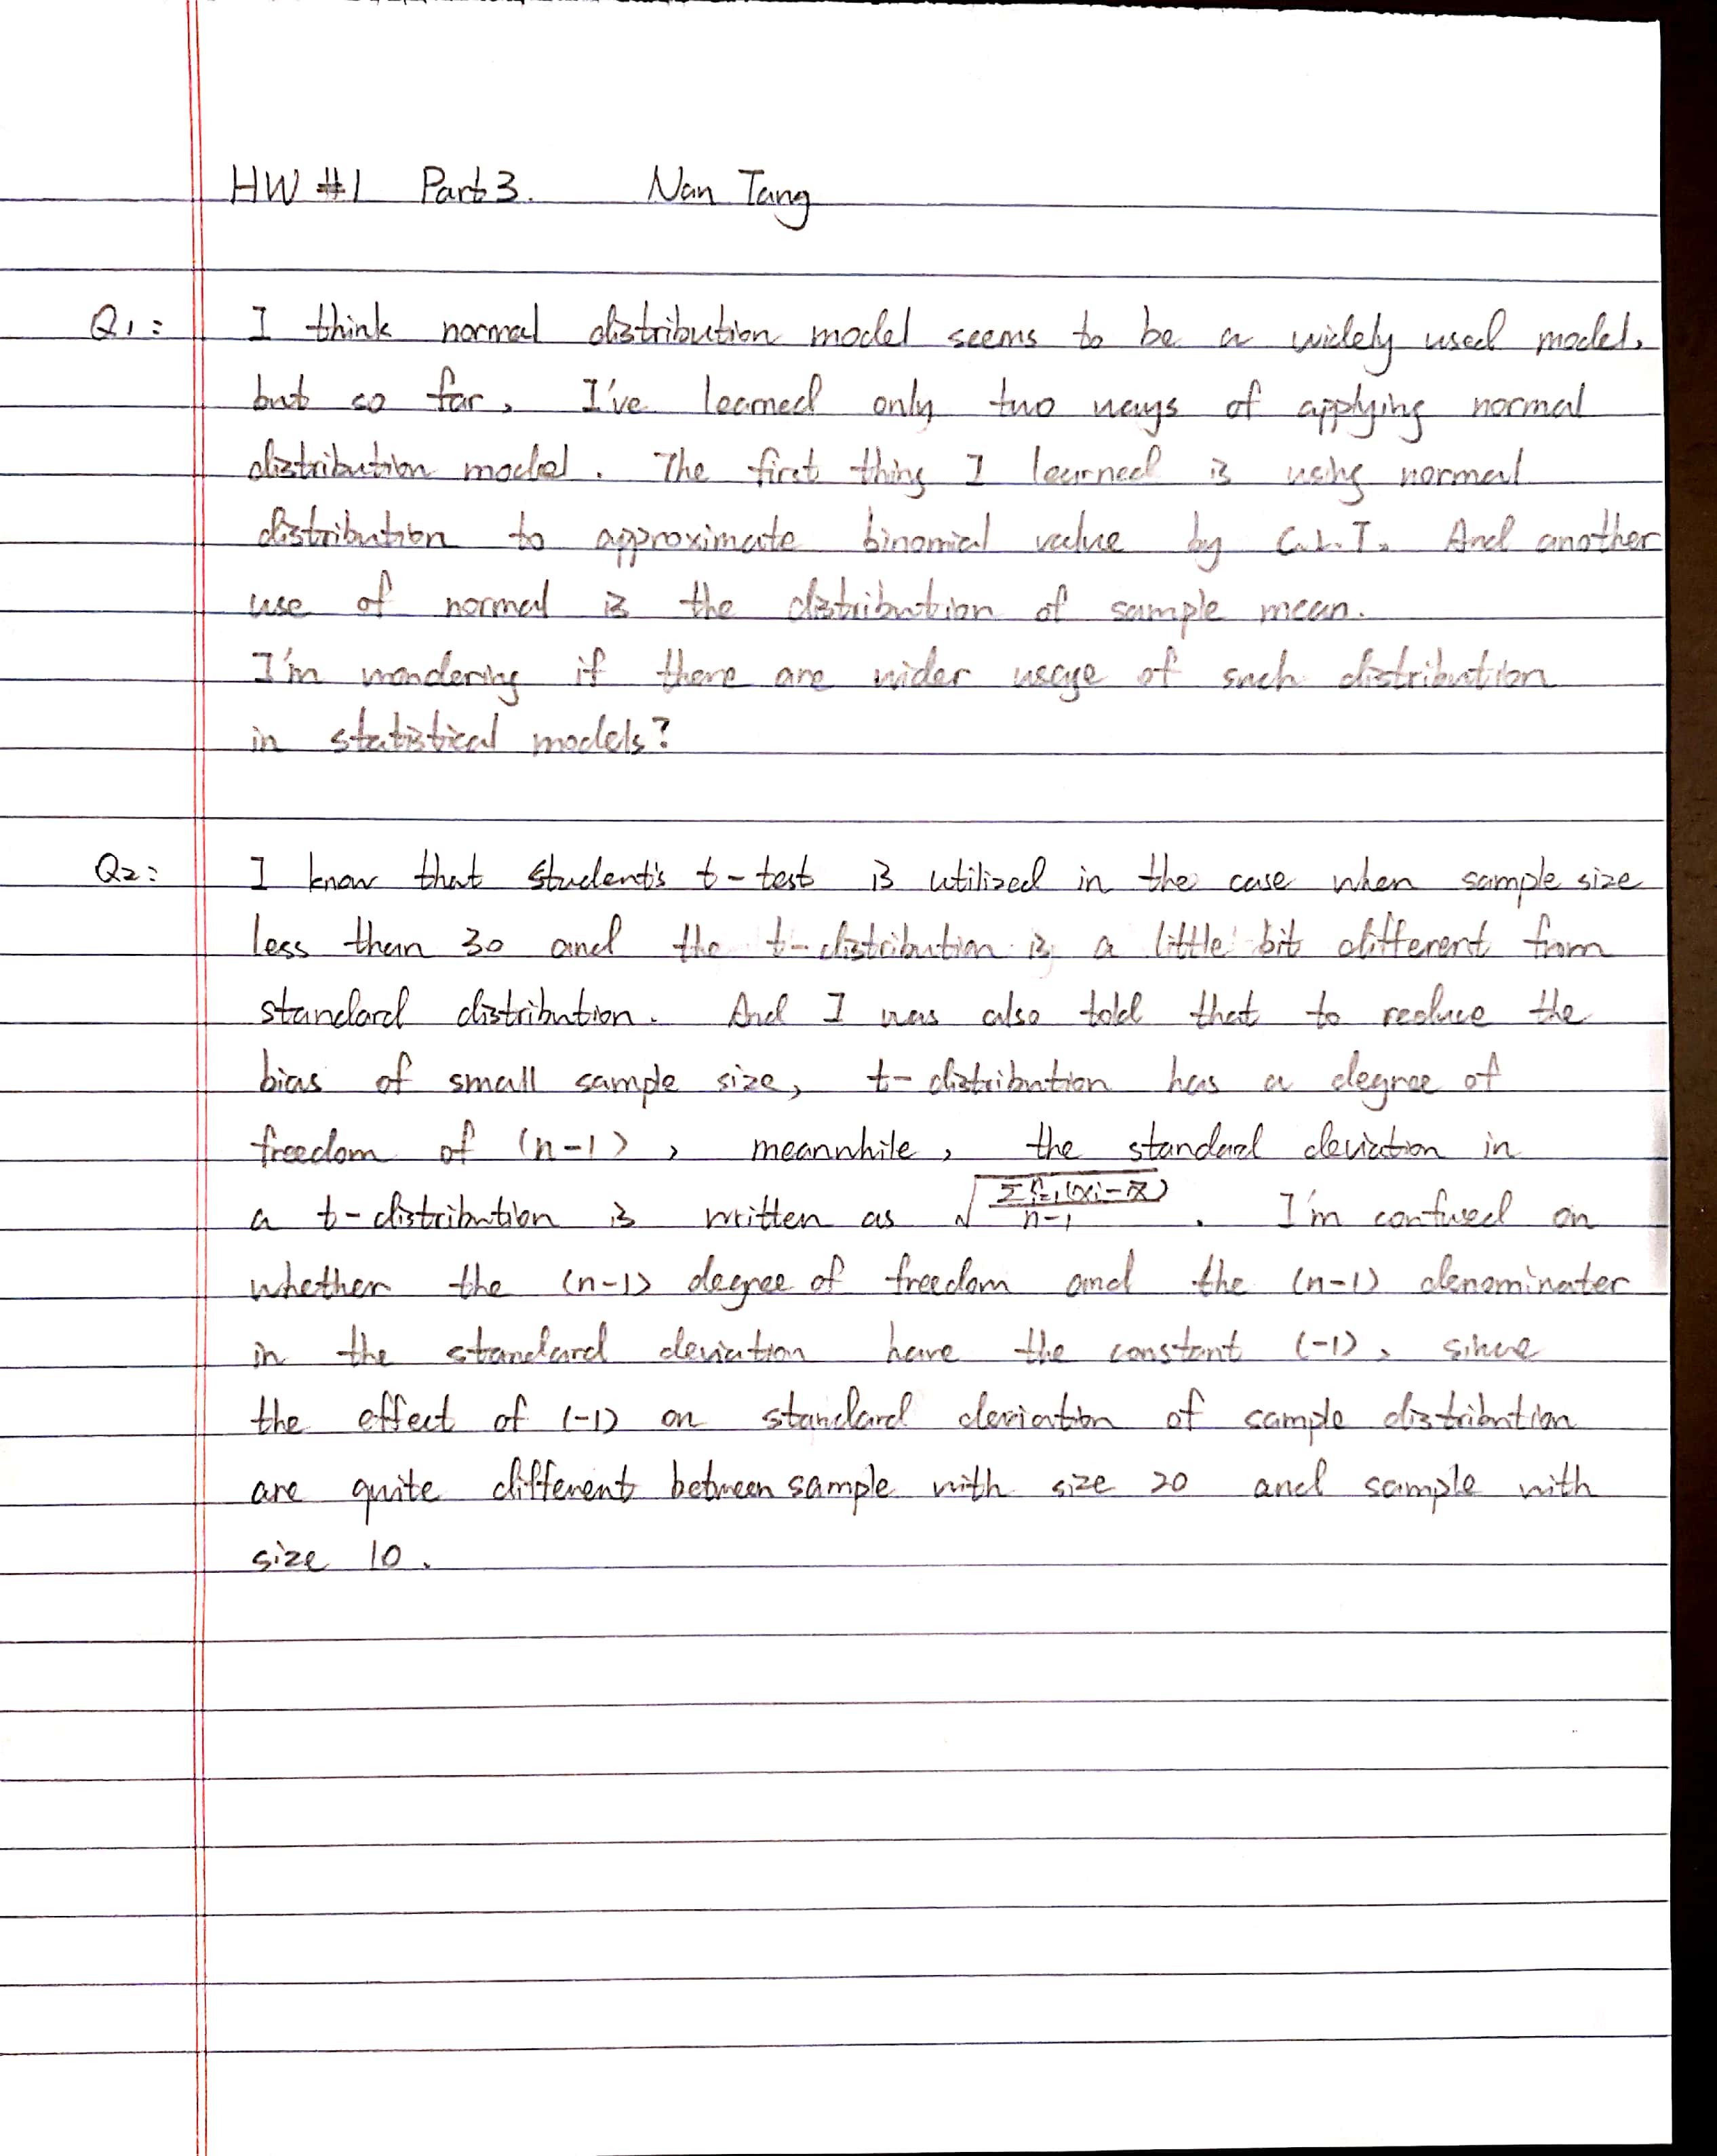 HW #1 Part 3. Nan Tang
Q1: I think normal distribution model seems to be a widely used model,
but so far, I've learned only two ways of applying normal
distribution model. The first thing I learned is using normal
distribution to approximate binomial value by C.L.T. And another
use of normal is the distribution of sample mean.
I'm wondering if there are wider usage of such distribution
in statistical models?
Q2: I know that student's t-test is utilized in the case when sample size
less than 30 and the t-distribution is a little bit different from
standard distribution. And I was also told that to reduce the
bias of small sample size, t-distribution has a degree of
freedom of (n-1), meanwhile, the standard deviation in
a t-distribution is written as √(Σⁿᵢ₌₁(xi-x̄)/n-1). I'm confused on
whether the (n-1) degree of freedom and the (n-1) denominater
in the standard deviation have the constant (-1), since
the effect of (-1) on standard deviation of sample distribution
are quite different between sample with size 20 and sample with
size 10.